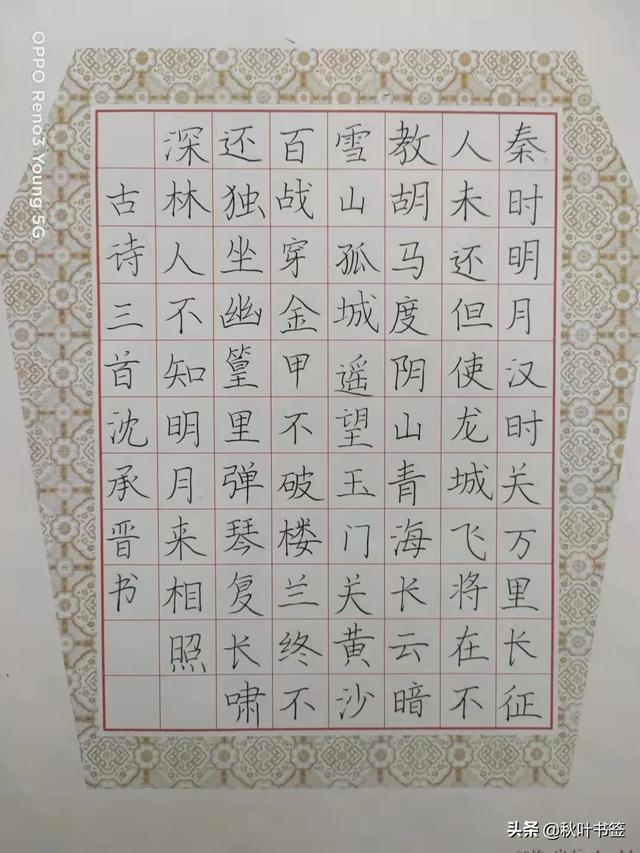 秦时明月汉时关万里长征
人未还但使龙城飞将在不
教胡马度阴山青海长云暗
雪山孤城遥望玉门关黄沙
百战穿金甲不破楼兰终不
还独坐幽篁里弹琴复长啸
深林人不知明月来相照
古诗三首沈承晋书
OPPO Reno3 Young 5G
头条 @秋叶书签